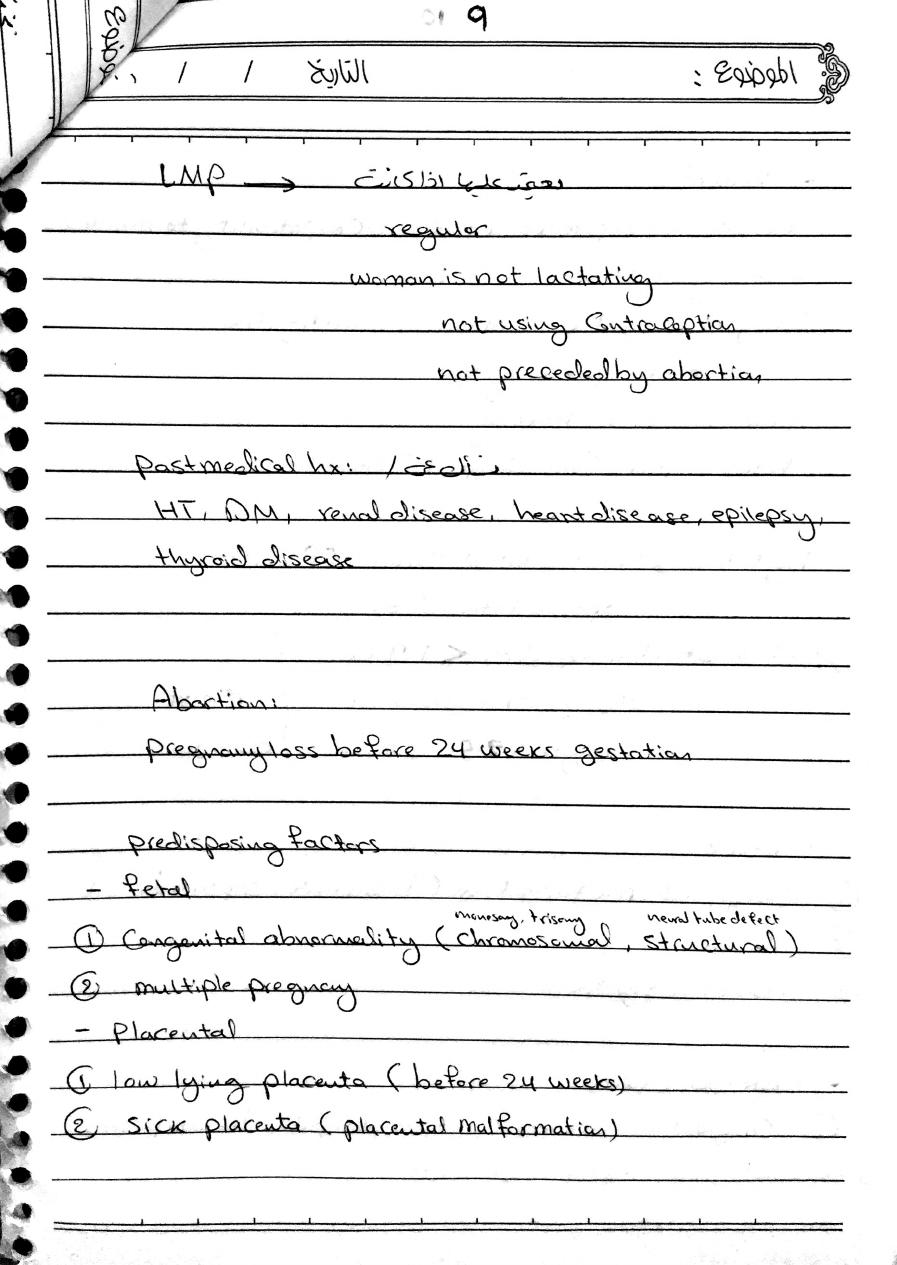 9
الموضوع : التاريخ / /
LMP → يعتمد عليها اذا كانت
regular
woman is not lactating
not using Contraception
not preceded by abortion
past medical hx: /
HT, DM, renal disease, heart disease, epilepsy,
thyroid disease
Abortion:
pregnancy loss before 24 weeks gestation
predisposing factors
- fetal
monosomy, trisomy neural tube defect
① Congenital abnormality (chromosomal, structural)
② multiple pregnancy
- Placental
① low lying placenta (before 24 weeks)
② sick placenta (placental malformation)